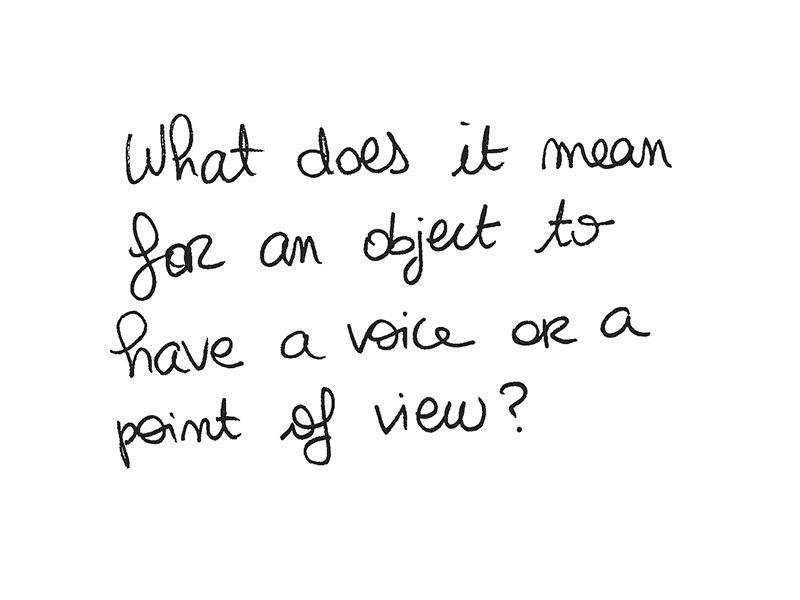 What does it mean
for an object to
have a voice or a
point of view?